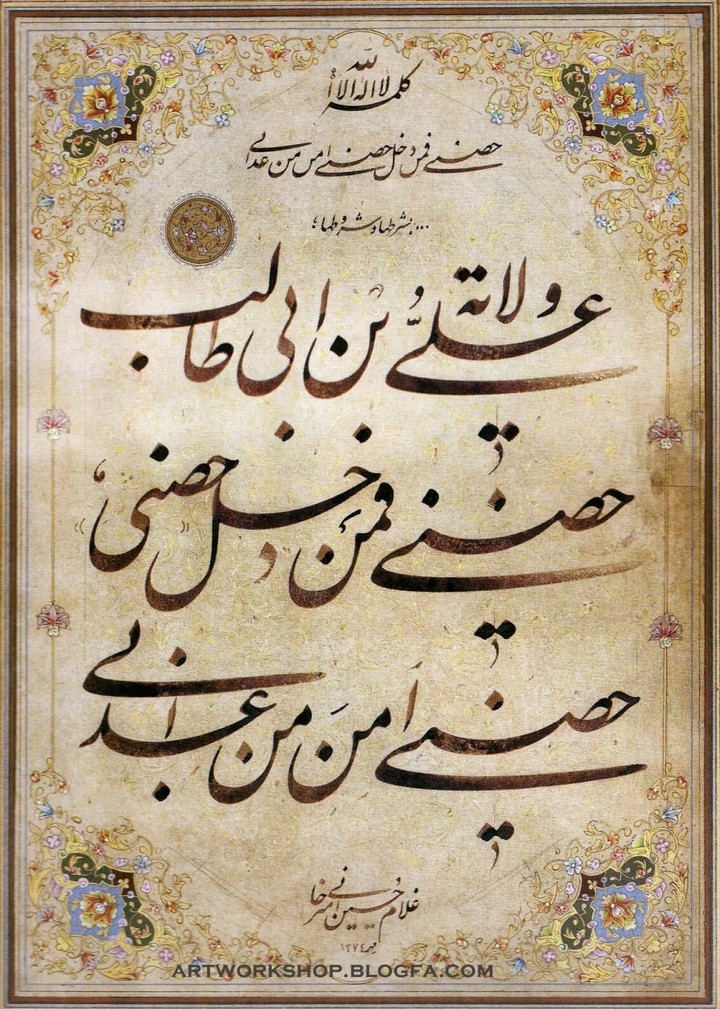 كلمة لا اله الا الله
حصنی فمن دخل حصنی امن من عذابی
...بشرطها و شروطها؛
ولایة علیُّ بن ابی طالب
حصنی فمن دخل «حصنی»
حصنی اَمنَ من عذابی
غلامحسین امیرخانی
مهر ۱۳۷۴
ARTWORKSHOP.BLOGFA.COM